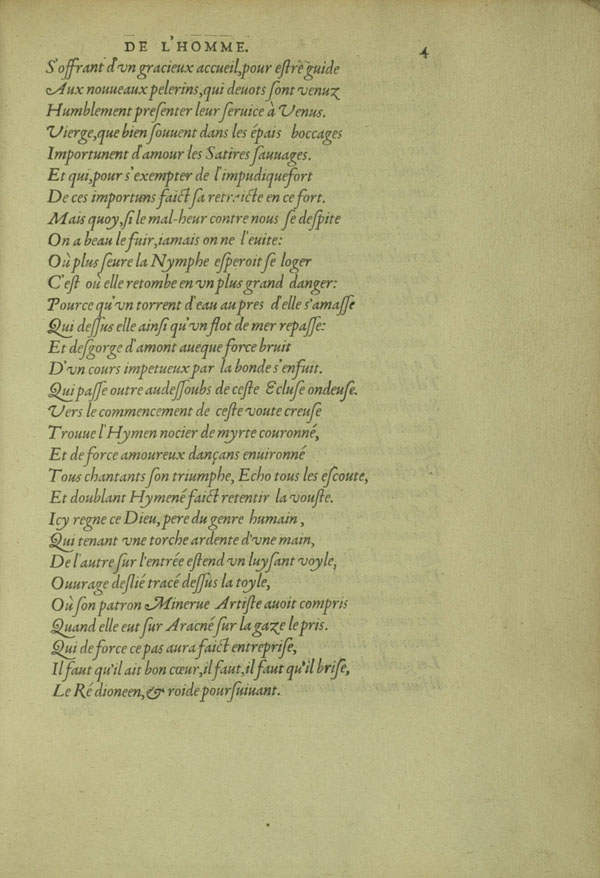 DE L'HOMME. 4
S'offrant d'vn gracieux accueil,pour eſtre guide
Aux nouueaux pelerins,qui deuots ſont venuz
Humblement preſenter leur ſeruice à Venus.
Vierge,que bien ſouuent dans les épais boccages
Importunent d'amour les Satires ſauuages.
Et qui,pour s'exempter de l'impudiquefort
De ces importuns faict ſa retraicte en ce fort.
Mais quoy,ſi le mal-heur contre nous ſe deſpite
On a beau le fuir,iamais on ne l'euite:
Où plus ſeure la Nymphe eſperoit ſe loger
C'eſt où elle retombe en vn plus grand danger:
Pource qu'vn torrent d'eau au pres d'elle s'amaſſe
Qui deſſus elle ainſi qu'vn flot de mer repaſſe:
Et deſgorge d'amont aueque force bruit
D'vn cours impetueux par la bonde s'enfuit.
Qui paſſe outre audeſſoubs de ceſte Ecluſe ondeuſe.
Vers le commencement de ceſte voute creuſe
Trouue l'Hymen nocier de myrte couronné,
Et de force amoureux dançans enuironné
Tous chantants ſon triumphe, Echo tous les eſcoute,
Et doublant Hymené faict retentir la vouſte.
Icy regne ce Dieu, pere du genre humain,
Qui tenant vne torche ardente d'vne main,
De l'autre ſur l'entrée eſtend vn luyſant voyle,
Ouurage deſlié tracé deſſus la toyle,
Où ſon patron Minerue Artiſte auoit compris
Quand elle eut ſur Aracné ſur la gaze le pris.
Qui de force ce pas aura faict entrepriſe,
Il faut qu'il ait bon cœur,il faut,il faut qu'il briſe,
Le Ré dioneen,& roide pourſuiuant.